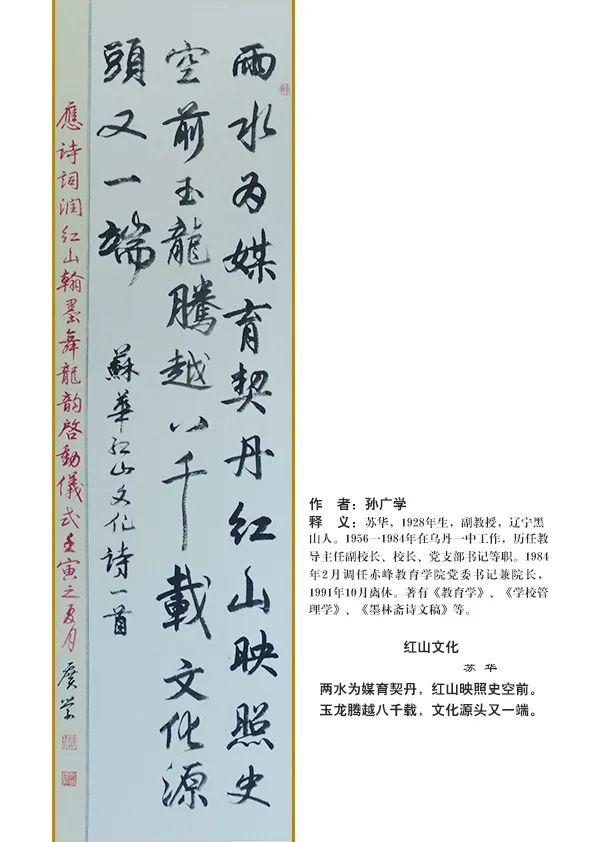 雨水为媒育契丹红山映照史
空前玉龍騰越八千載文化源
頭又一端
蘇華红山文化诗一首
應诗詞润红山翰墨舞龍韵啓動儀式壬寅之夏月
廣学
作　者：孙广学
释　义：苏华，1928年生，副教授，辽宁黑
山人。1956—1984年在乌丹一中工作，历任教
导主任副校长、校长、党支部书记等职。1984
年2月调任赤峰教育学院党委书记兼院长，
1991年10月离休。著有《教育学》、《学校管
理学》、《墨林斋诗文稿》等。
红山文化
苏 华
两水为媒育契丹，红山映照史空前。
玉龙腾越八千载，文化源头又一端。